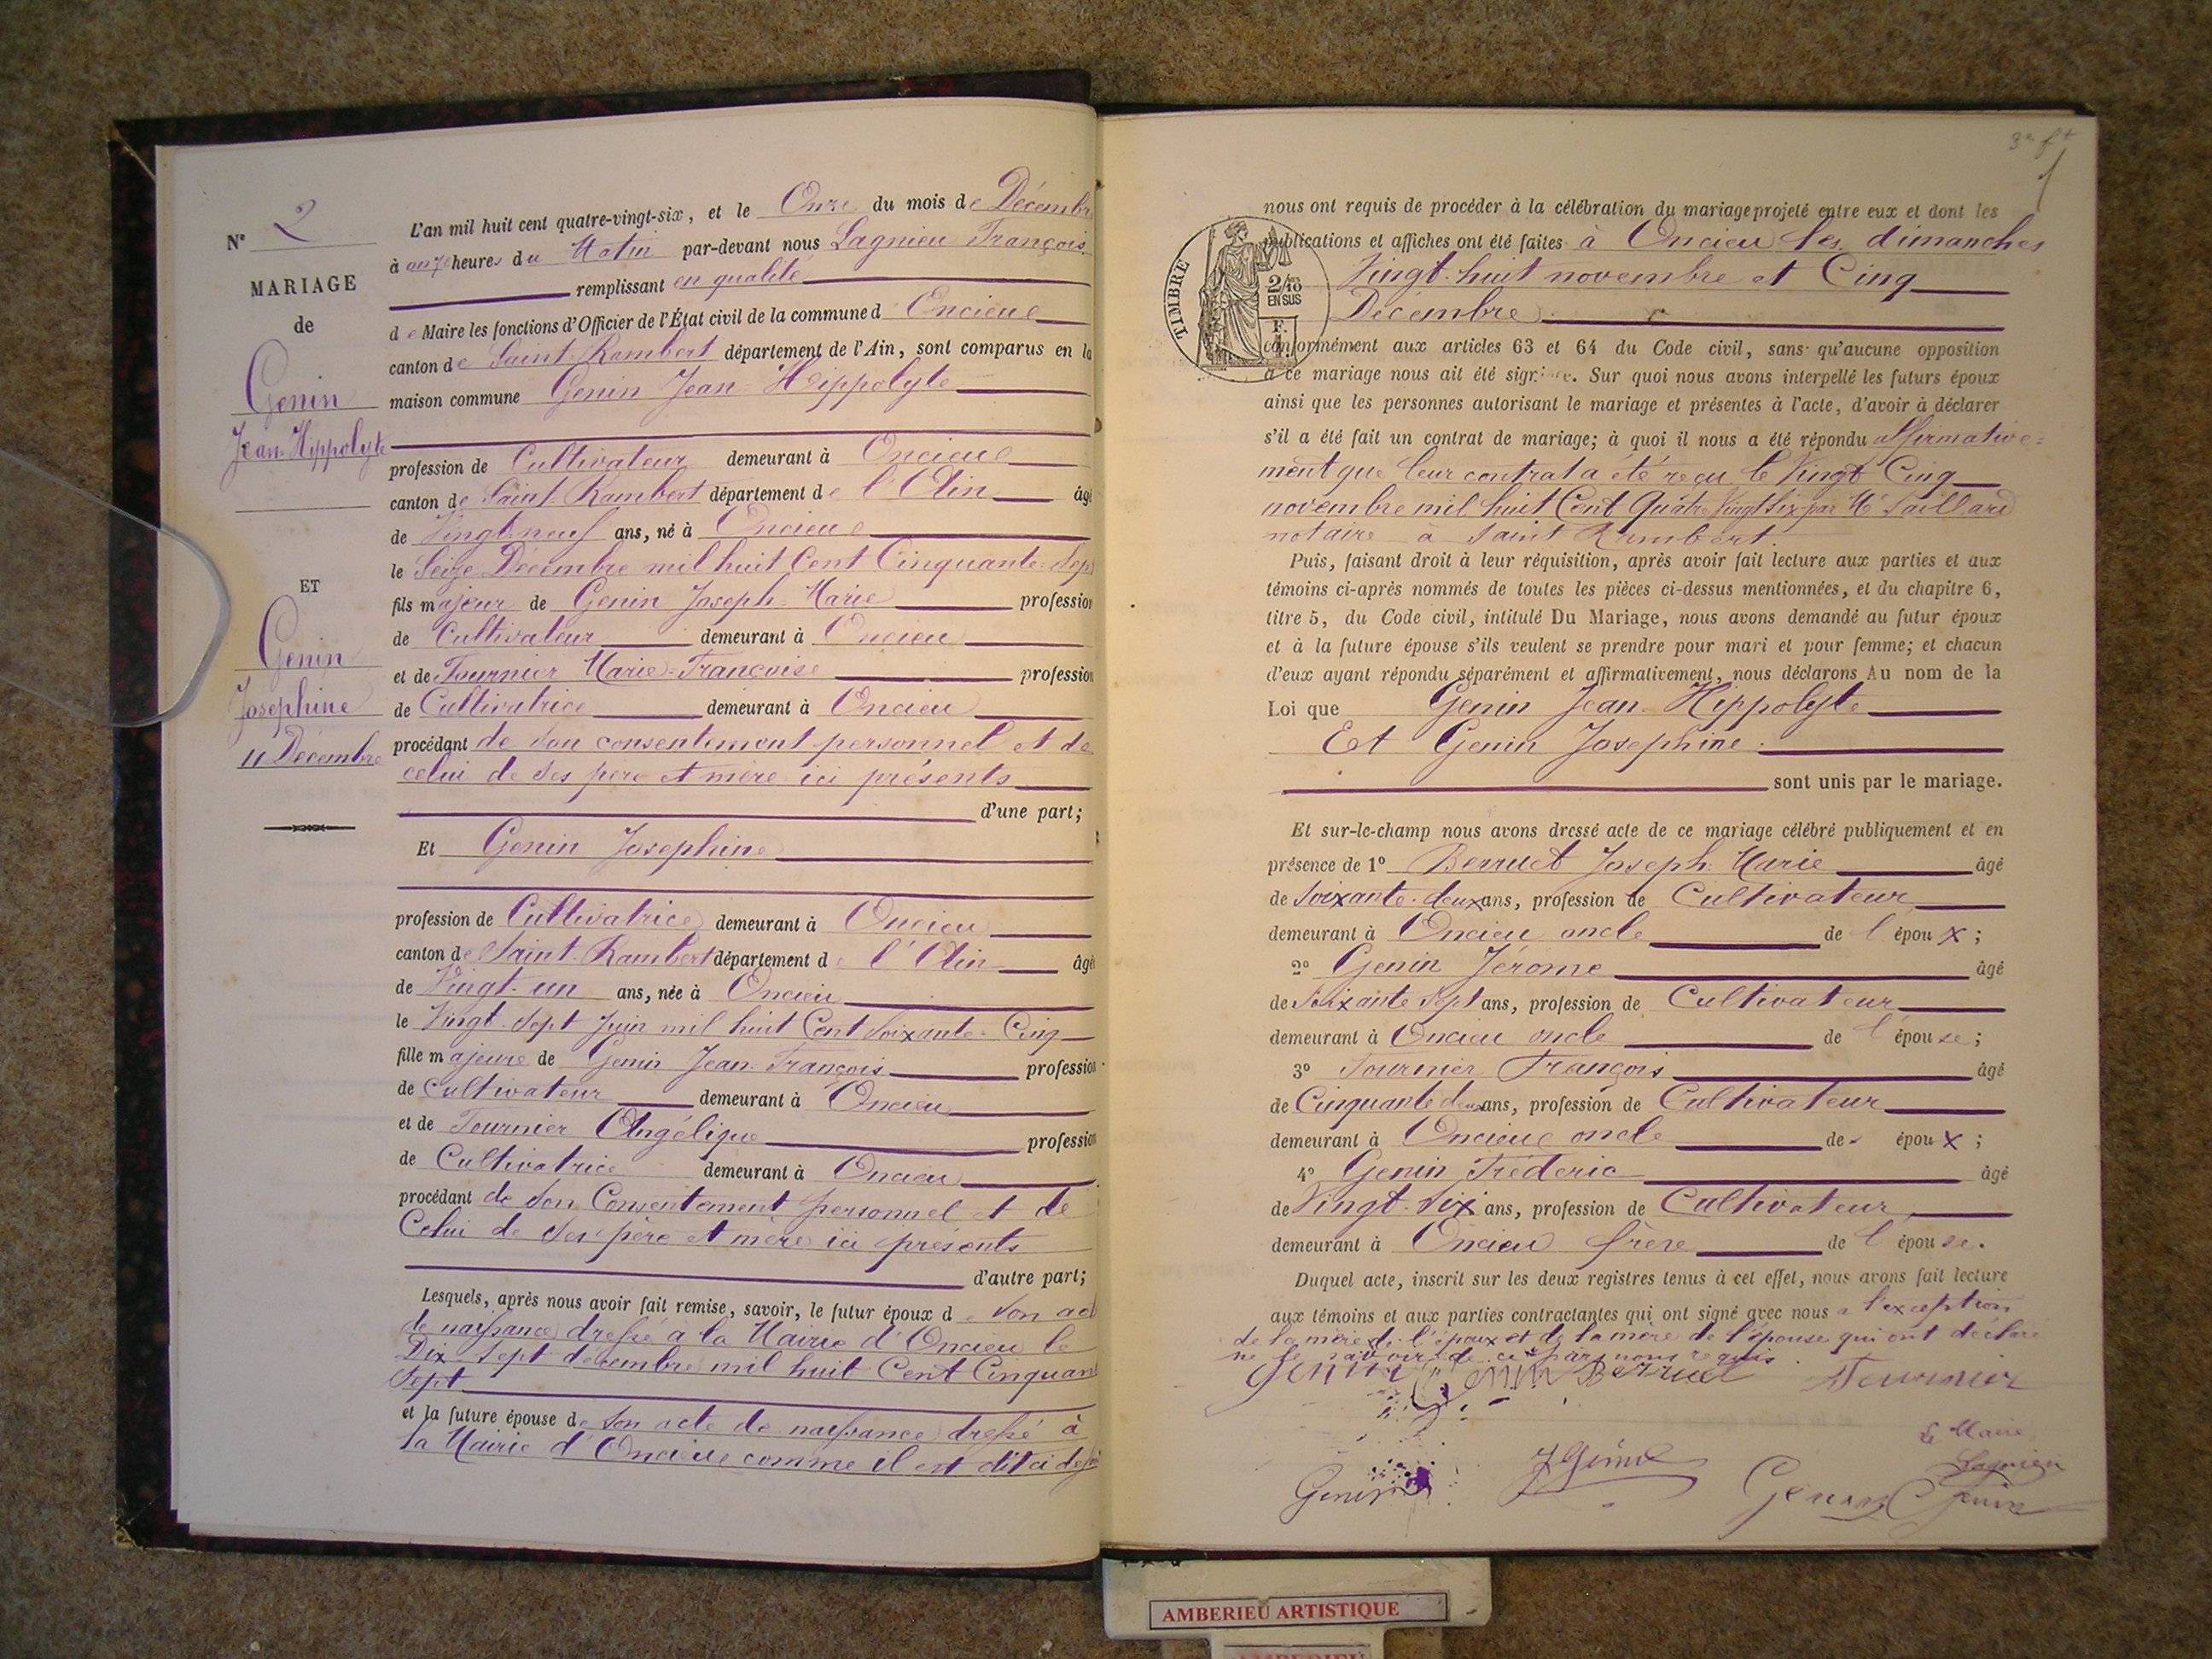 N° 2
MARIAGE
de
Genin
Jean-Hippolyte
ET
Genin
Josephine
11 Décembre
L'an mil huit cent quatre-vingt-six, et le Onze du mois de Décembre
à onze heures du Matin par-devant nous Lagnieu François
remplissant en qualité
de Maire les fonctions d'Officier de l'État civil de la commune d Oncieu
canton de Saint-Rambert département de l'Ain, sont comparus en la
maison commune Genin Jean-Hippolyte
profession de Cultivateur demeurant à Oncieu
canton de Saint-Rambert département de l'Ain âgé
de Vingt-neuf ans, né à Oncieu
le Seize Décembre mil huit Cent Cinquante-Sept
fils majeur de Genin Joseph-Marie profession
de Cultivateur demeurant à Oncieu
et de Tournier Marie-Françoise profession
de Cultivatrice demeurant à Oncieu
procédant de son consentement personnel et de
celui de ses père et mère ici présents
d'une part;
Et Genin Josephine
profession de Cultivatrice demeurant à Oncieu
canton de Saint-Rambert département de l'Ain âgée
de Vingt-un ans, née à Oncieu
le Vingt-Sept Juin mil huit Cent Soixante-Cinq
fille majeure de Genin Jean-François profession
de Cultivateur demeurant à Oncieu
et de Tournier Angélique profession
de Cultivatrice demeurant à Oncieu
procédant de son Consentement personnel et de
Celui de ses père et mère ici présents
d'autre part;
Lesquels, après nous avoir fait remise, savoir, le futur époux de son acte
de naissance dressé à la Mairie d'Oncieu le
Dix-Sept décembre mil huit Cent Cinquante
Sept
et la future épouse de son acte de naissance dressé à
la Mairie d'Oncieu comme il est dit ci dessus
3e ft
nous ont requis de procéder à la célébration du mariage projeté entre eux et dont les
publications et affiches ont été faites à Oncieu les dimanches
Vingt-huit novembre et Cinq
Décembre
TIMBRE
2/10
EN SUS
conformément aux articles 63 et 64 du Code civil, sans qu'aucune opposition
à ce mariage nous ait été signifiée. Sur quoi nous avons interpellé les futurs époux
ainsi que les personnes autorisant le mariage et présentes à l'acte, d'avoir à déclarer
s'il a été fait un contrat de mariage; à quoi il nous a été répondu affirmative=
ment que leur contrat a été reçu le Vingt-Cinq
novembre mil huit Cent Quatre Vingt Six par Me Saillard
notaire à Saint Rambert.
Puis, faisant droit à leur réquisition, après avoir fait lecture aux parties et aux
témoins ci-après nommés de toutes les pièces ci-dessus mentionnées, et du chapitre 6,
titre 5, du Code civil, intitulé Du Mariage, nous avons demandé au futur époux
et à la future épouse s'ils veulent se prendre pour mari et pour femme; et chacun
d'eux ayant répondu séparément et affirmativement, nous déclarons Au nom de la
Loi que Genin Jean-Hippolyte
Et Genin Josephine
sont unis par le mariage.
Et sur-le-champ nous avons dressé acte de ce mariage célébré publiquement et en
présence de 1° Berruet Joseph-Marie âgé
de Soixante-deux ans, profession de Cultivateur
demeurant à Oncieu oncle de l'époux;
2° Genin Jérome âgé
de Soixante Sept ans, profession de Cultivateur
demeurant à Oncieu oncle de l'épouse;
3° Tournier François âgé
de Cinquante deux ans, profession de Cultivateur
demeurant à Oncieu oncle des époux;
4° Genin Fréderic âgé
de Vingt-Six ans, profession de Cultivateur
demeurant à Oncieu frère de l'épouse.
Duquel acte, inscrit sur les deux registres tenus à cet effet, nous avons fait lecture
aux témoins et aux parties contractantes qui ont signé avec nous à l'exception
de la mère de l'époux et de la mère de l'épouse qui ont déclaré
ne le savoir de ce par nous requis.
Genin Genin Berruet Tournier
Le Maire
Lagnieu
Genin J Genin Genin Genin
AMBERIEU ARTISTIQUE
AMBERIEU